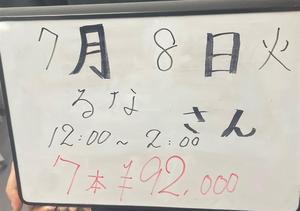 7月8日火
るな さん
12:00~2:00
7本 ¥92,000